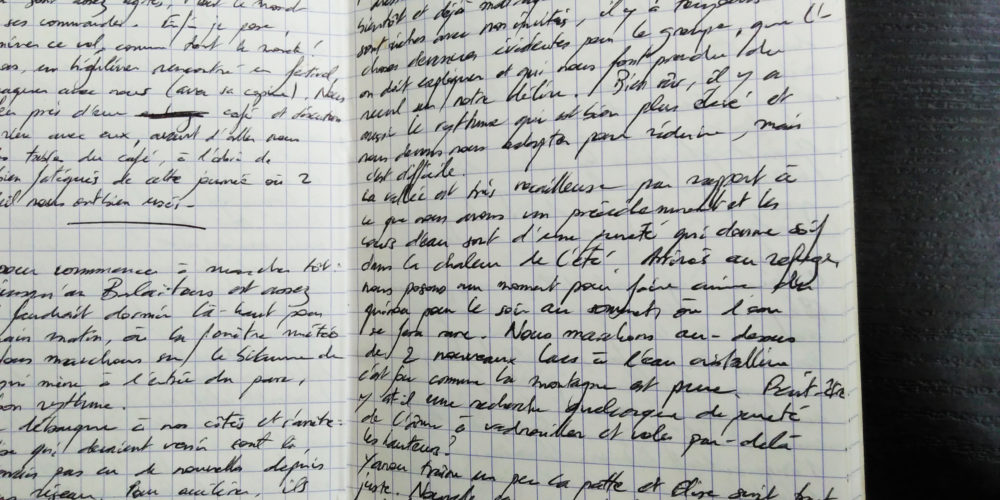 ses commandes. Enfin je pose,
ce vol, comme tout le monde!
pas, un highliner rencontré en festival,
avec nous (avec sa copine). Nous
près d'eux café et discutons
avec eux, avant d'aller nous
table du café, à l'abri de
bien fatigués de cette journée où 2
nous ont bien usés.
pour commencer à marcher tôt.
jusqu'au Balaïtous est assez
faudrait dormir là-haut pour
matin, où la fenêtre météo
Nous marchons sur le bitume de
qui mène à l'entrée du parc,
bon rythme.
à nos côtés et s'arrête.
qui devaient venir sont là
pas eu de nouvelles depuis
réseau. Pour ils
bientôt et déjà
avec nos invités, il y a toujours
choses devenues évidentes pour le groupe, que l'
on doit expliquer et qui nous font prendre du
recul sur notre délire. Bien sûr, il y a
aussi le rythme qui est bien plus élevé et
nous devons nous adapter pour réduire, mais
c'est difficile.
La vallée est très rocailleuse par rapport à
ce que nous avons vu précédemment et les
cours d'eau sont d'une pureté qui donne soif
dans la chaleur de l'été. Arrivés au refuge,
nous posons un moment pour faire cuire du
quinoa pour le soir au sommet, où l'eau
se fera rare. Nous marchons au-dessus
de 2 nouveaux lacs à l'eau cristalline
c'est fou comme la montagne est pure. Peut-être
y a-t-il une recherche quelconque de pureté
de l'âme à vadrouiller et voler par-delà
les hauteurs?
Yanou traîne un peu la patte et Elise suit tout
juste.